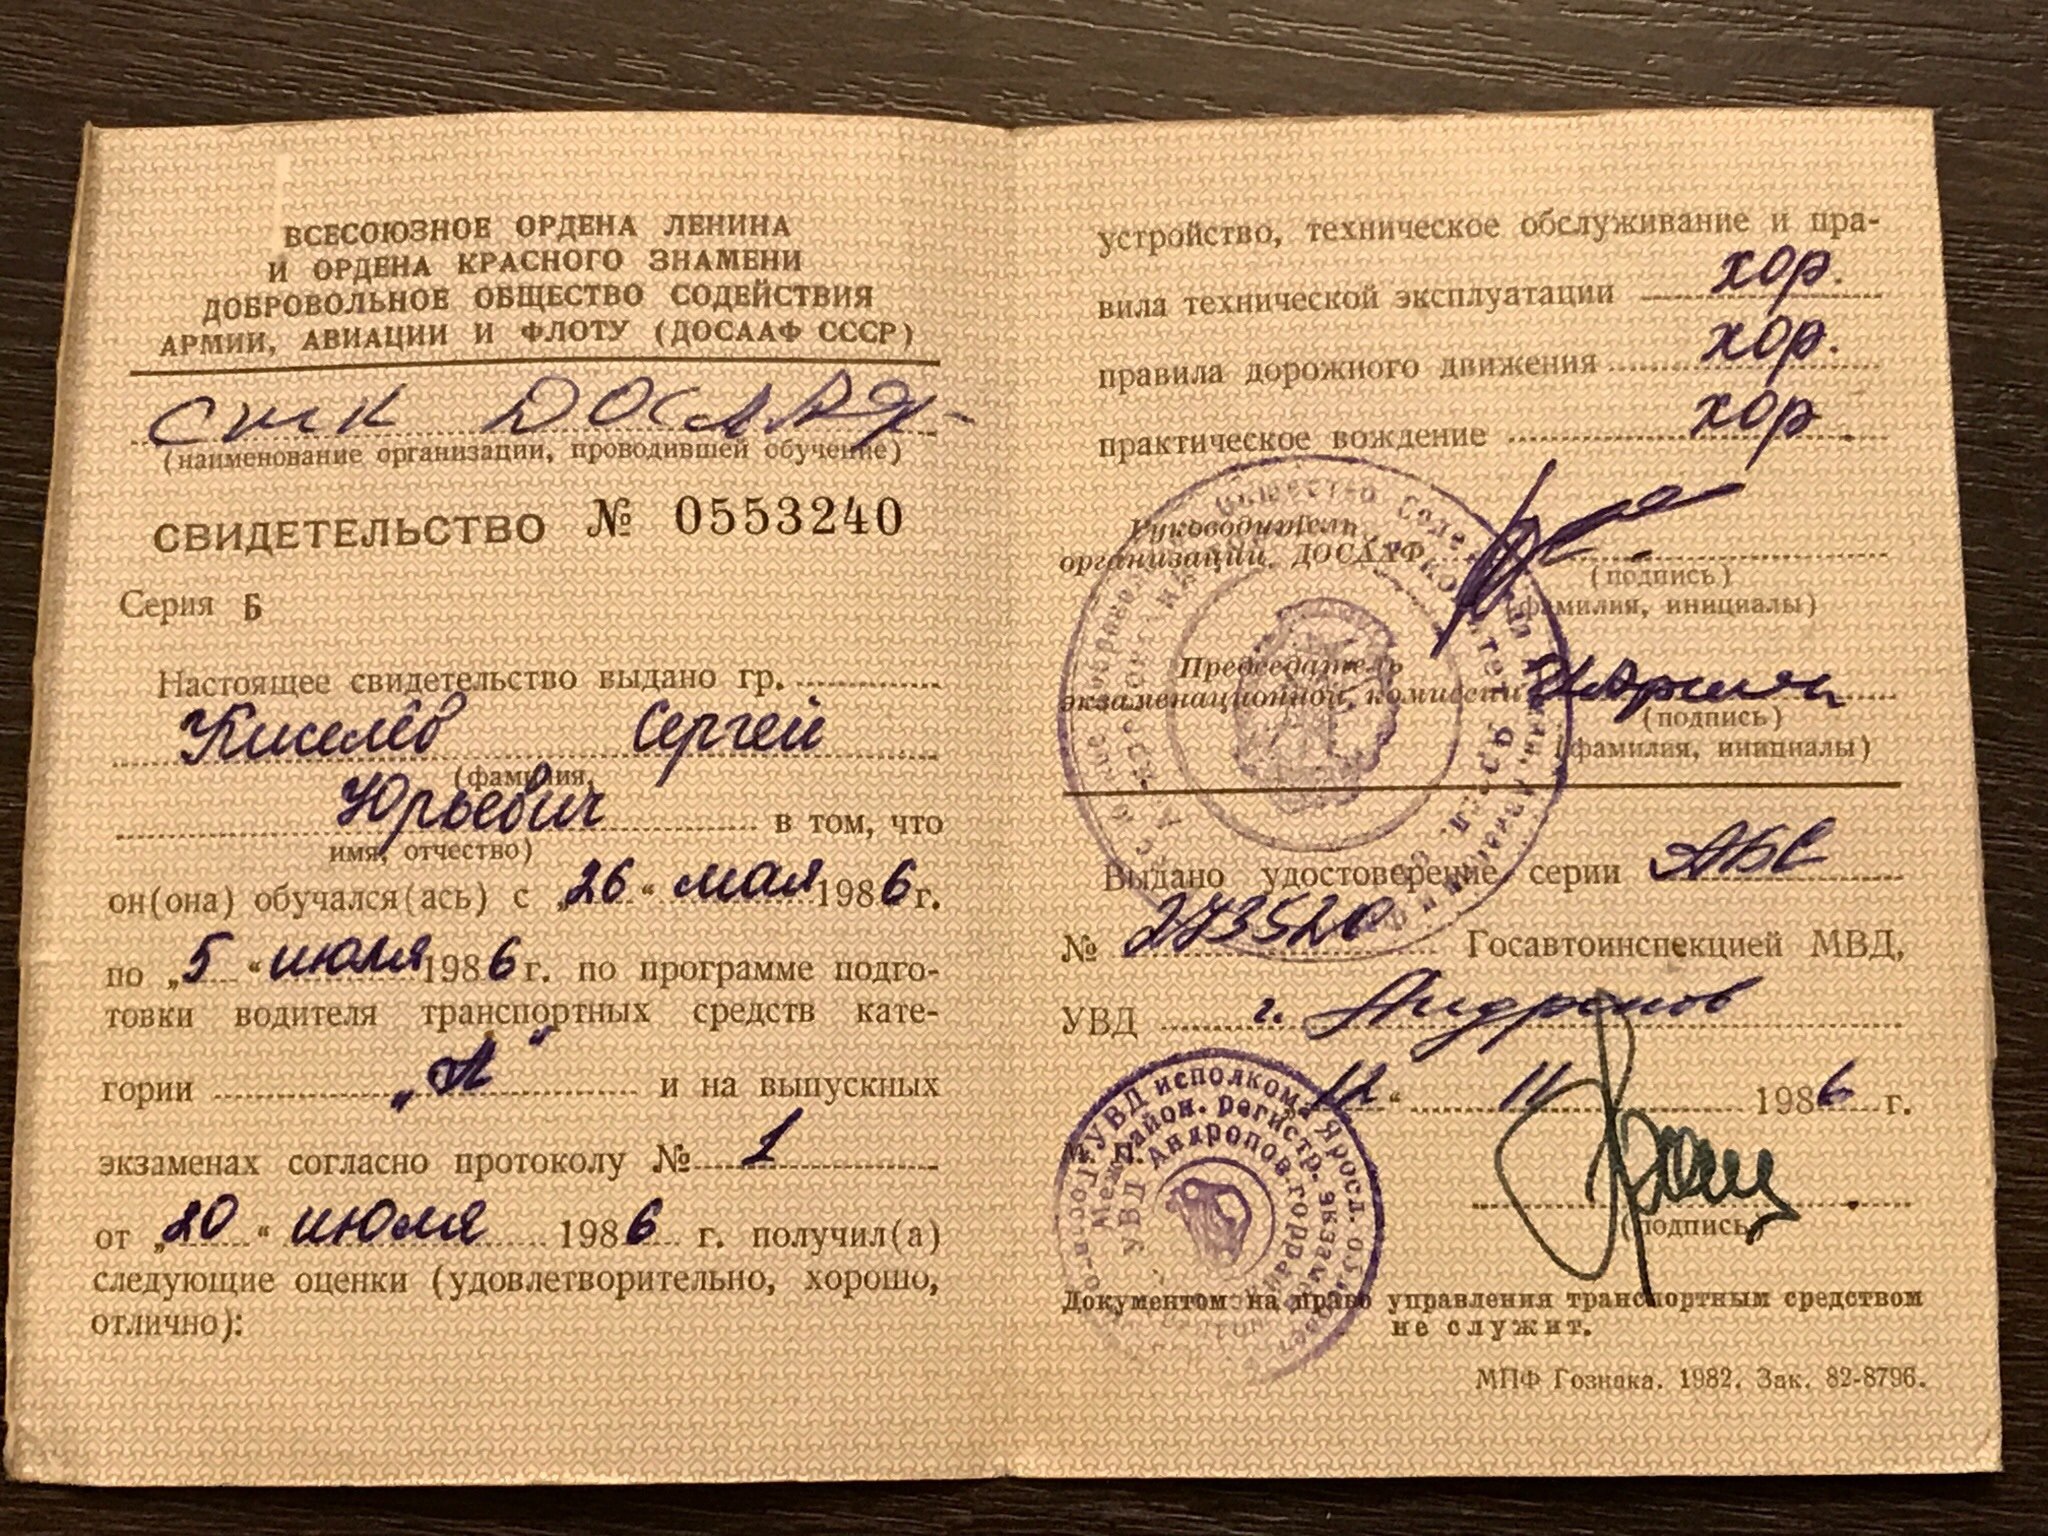 ВСЕСОЮЗНОЕ ОРДЕНА ЛЕНИНА
И ОРДЕНА КРАСНОГО ЗНАМЕНИ
ДОБРОВОЛЬНОЕ ОБЩЕСТВО СОДЕЙСТВИЯ
АРМИИ, АВИАЦИИ И ФЛОТУ (ДОСААФ СССР)
СТК ДОСААФ
(наименование организации, проводившей обучение)
СВИДЕТЕЛЬСТВО № 0553240
Серия Б
Настоящее свидетельство выдано гр.
Киселёв Сергей
(фамилия,
Юрьевич в том, что
имя, отчество)
он(она) обучался(ась) с „26“ мая 1986 г.
по „5“ июля 1986 г. по программе подго-
товки водителя транспортных средств кате-
гории „А“ и на выпускных
экзаменах согласно протоколу № 1
от „20“ июля 1986 г. получил(а)
следующие оценки (удовлетворительно, хорошо,
отлично):
устройство, техническое обслуживание и пра-
вила технической эксплуатации хор.
правила дорожного движения хор.
практическое вождение хор
Руководитель
организации ДОСААФ
(подпись)
(фамилия, инициалы)
Председатель
экзаменационной комиссии
(подпись)
(фамилия, инициалы)
Выдано удостоверение серии АБС
№ 273520 Госавтоинспекцией МВД,
УВД г. Андропов
12“ 11 1986 г.
(подпись)
Документом на право управления транспортным средством
не служит.
МПФ Гознака. 1982. Зак. 82-8796.
УВД исполкома Яросл.
Межрайон. регистр. экзам.
УВД Андропов. горрай